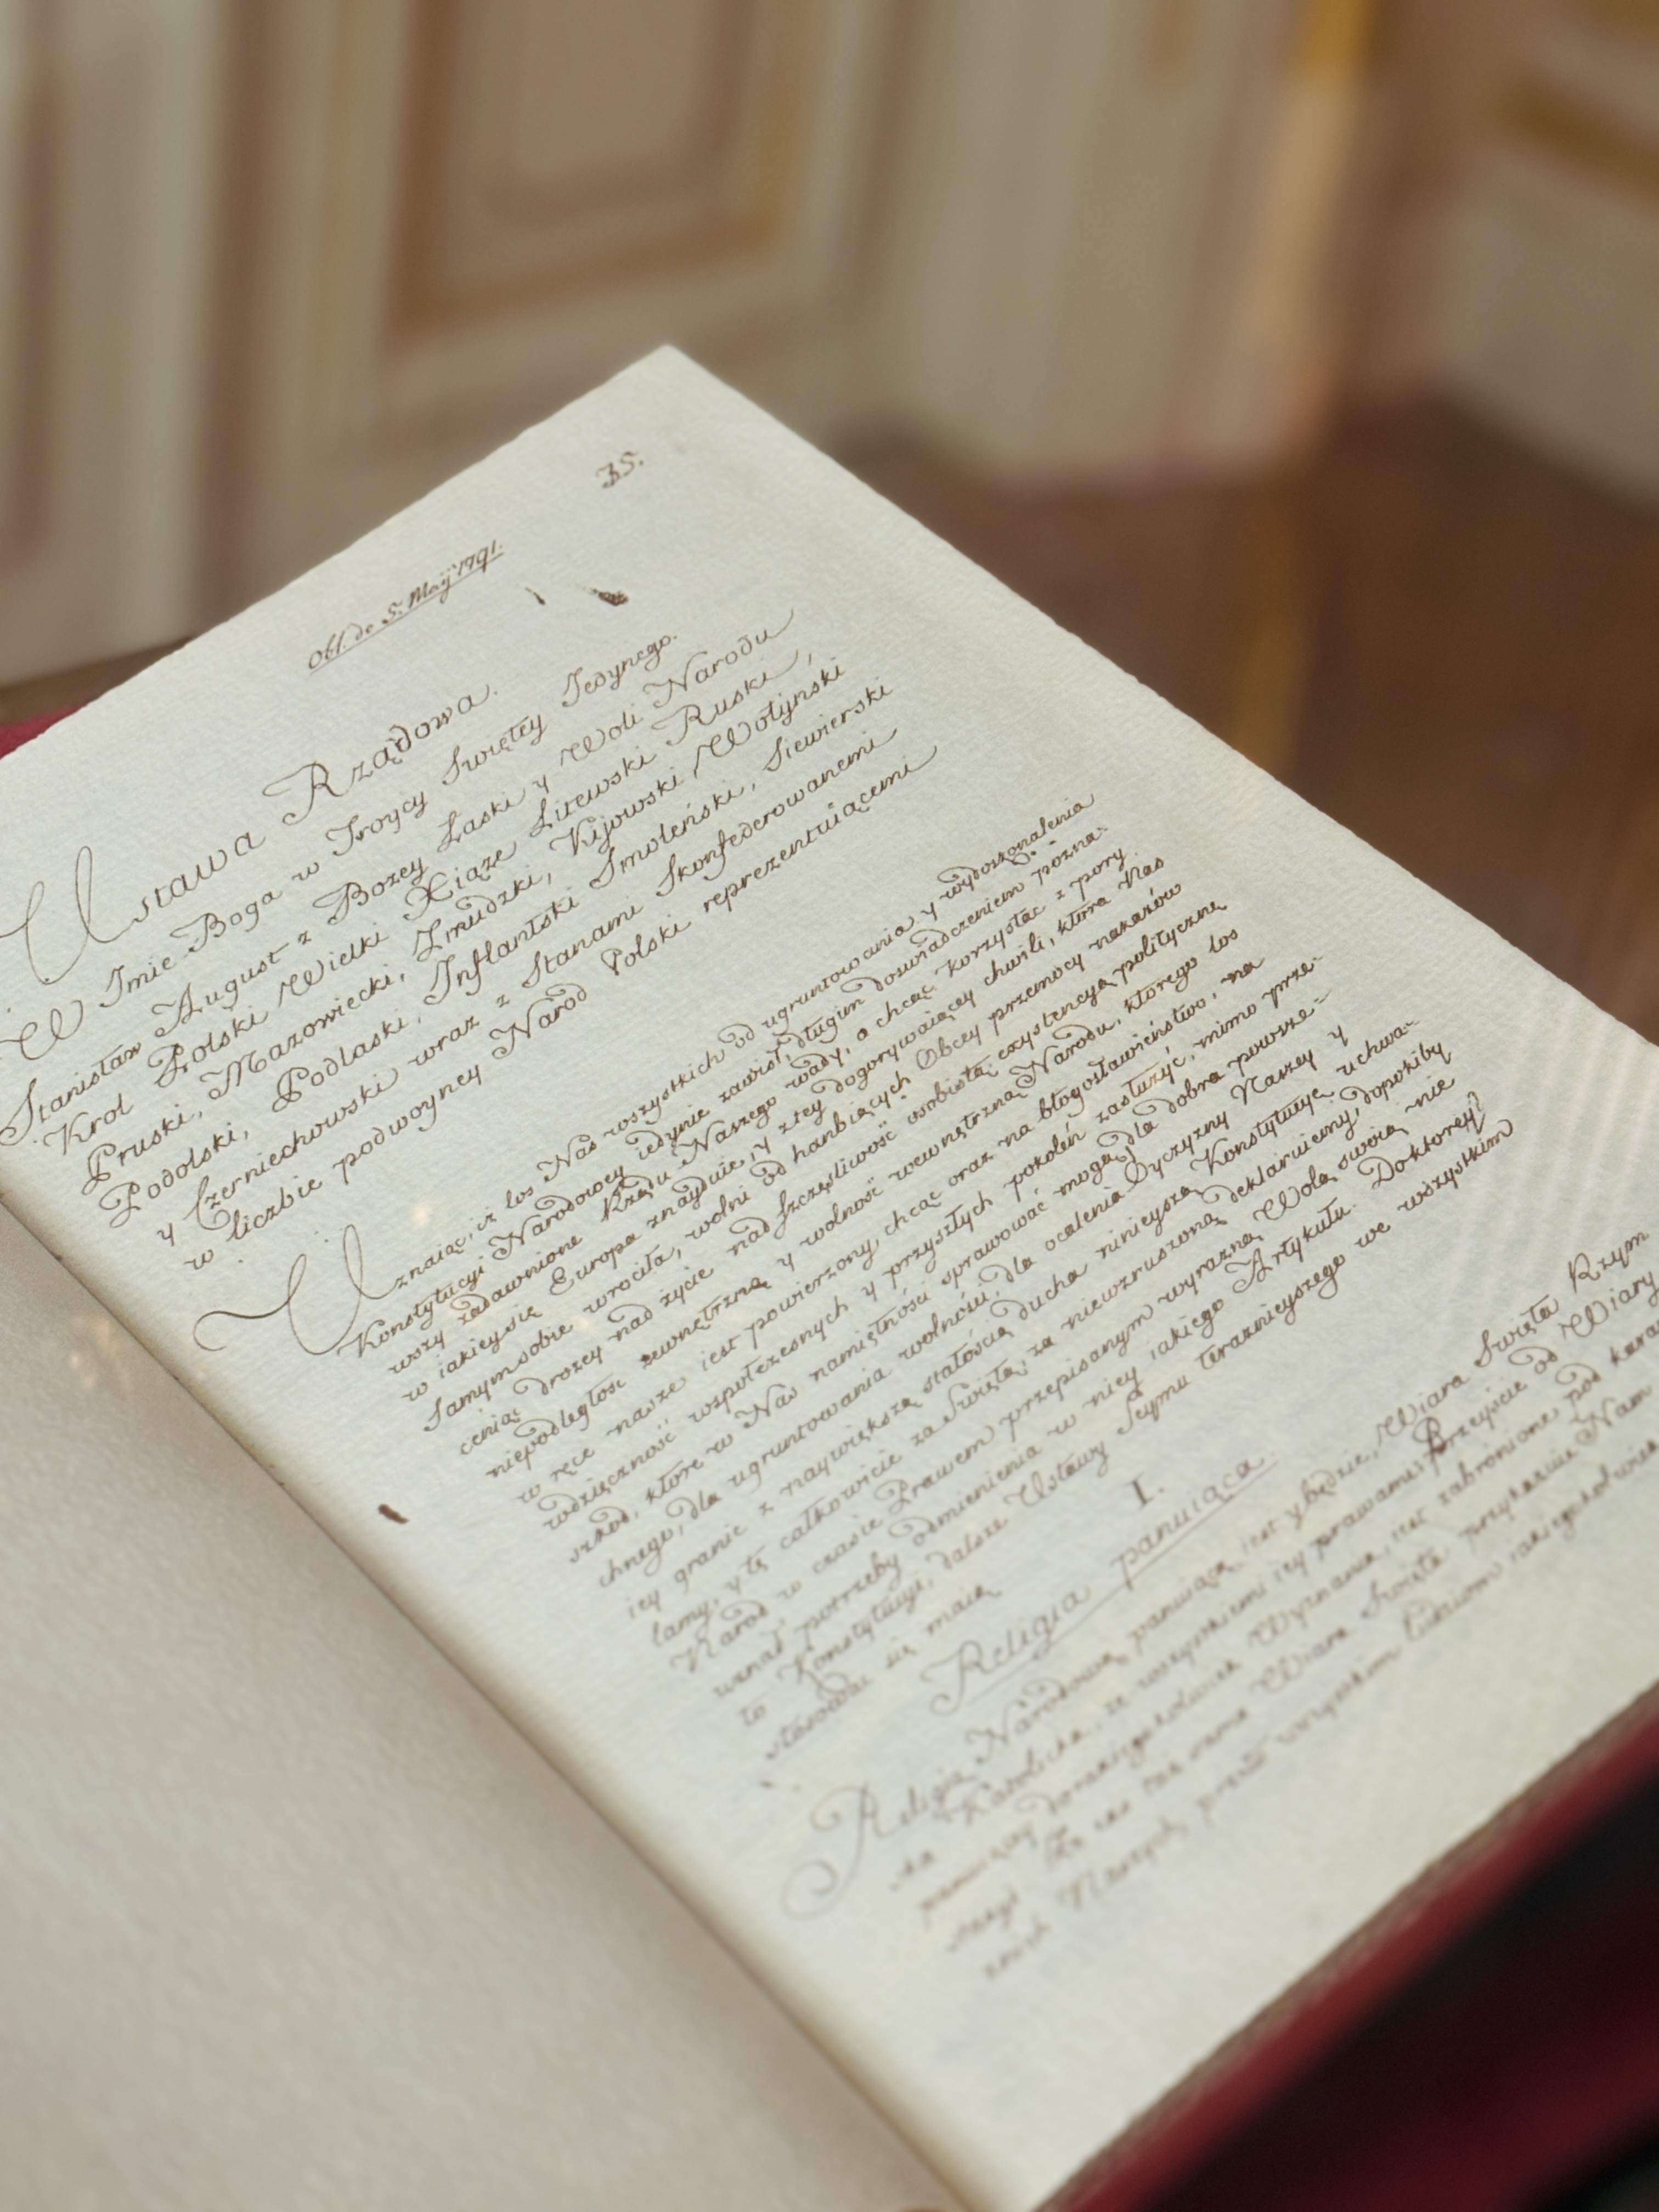 35.
Obl. de 5. Maij 1791.
Ustawa Rządowa.
W Imie Boga w Troycy Swiętey Jedynego.
Stanisław August z Bozey Łaski y Woli Narodu
Krol Polski Wielki Xiąze Litewski Ruski,
Pruski, Mazowiecki, Zmudzki, Kijowski, Wołyński
Podolski, Podlaski, Inflantski, Smoleński, Siewierski
y Czerniechowski wraz z Stanami Skonfederowanemi
w liczbie podwoyney Naród Polski reprezentuiącemi
Uznaiąc, iz los Nas wszystkich od ugruntowania y wydoskonalenia
Konstytucyi Narodowey iedynie zawisł, długim doswiadczeniem pozna-
wszy zadawnione Rządu Naszego wady, a chcąc korzystać z pory
w iakiey się Europa znayduie, y z tey dogorywaiącey chwili, która Nas
Samym sobie wrociła, wolni od hanbiących Obcey przemocy nakazów
ceniąc drozey nad zycie nad szczęsliwość osobistą exystencyą polityczną
niepodległość zewnętrzną y wolność wewnętrzną Narodu, ktorego los
w ręce nasze iest powierzony, chcąc oraz na błogosławieństwo, na
wdzięczność wspołczesnych y przyszłych pokoleń zasłuzyć, mimo prze-
szkod, które w Nas namiętności sprawować mogą, dla dobra powsze-
chnego, dla ugruntowania wolności, dla ocalenia Oyczyzny Naszey y
iey granic z naywiększą stałością ducha ninieyszą Konstytucyę uchwa-
lamy, y tę całkowicie za Swiętą, za niewzruszoną deklaruiemy, dopokiby
Narod w czasie Prawem przepisanym wyrazną Wolą swoią nie
uznał potrzeby odmienienia w niey iakiego Artykułu. Doktorey
to Konstytucyi, dalsze Ustawy Seymu teraznieyszego we wszystkim
stosować się maią
I.
Religia panuiąca
Religią Narodową panuiącą iest y będzie, Wiara Swięta Rzym
ska Katolicka, ze wszystkiemi iey prawami; Przeyście od Wiary
panuiącey do iakiegokolwiek Wyznania, iest zabronione pod karami
Ze zas taz sama Wiara Swięta przykazuie Nam
Naszych, przeto wszystkim Ludziom iakiegokolwiek